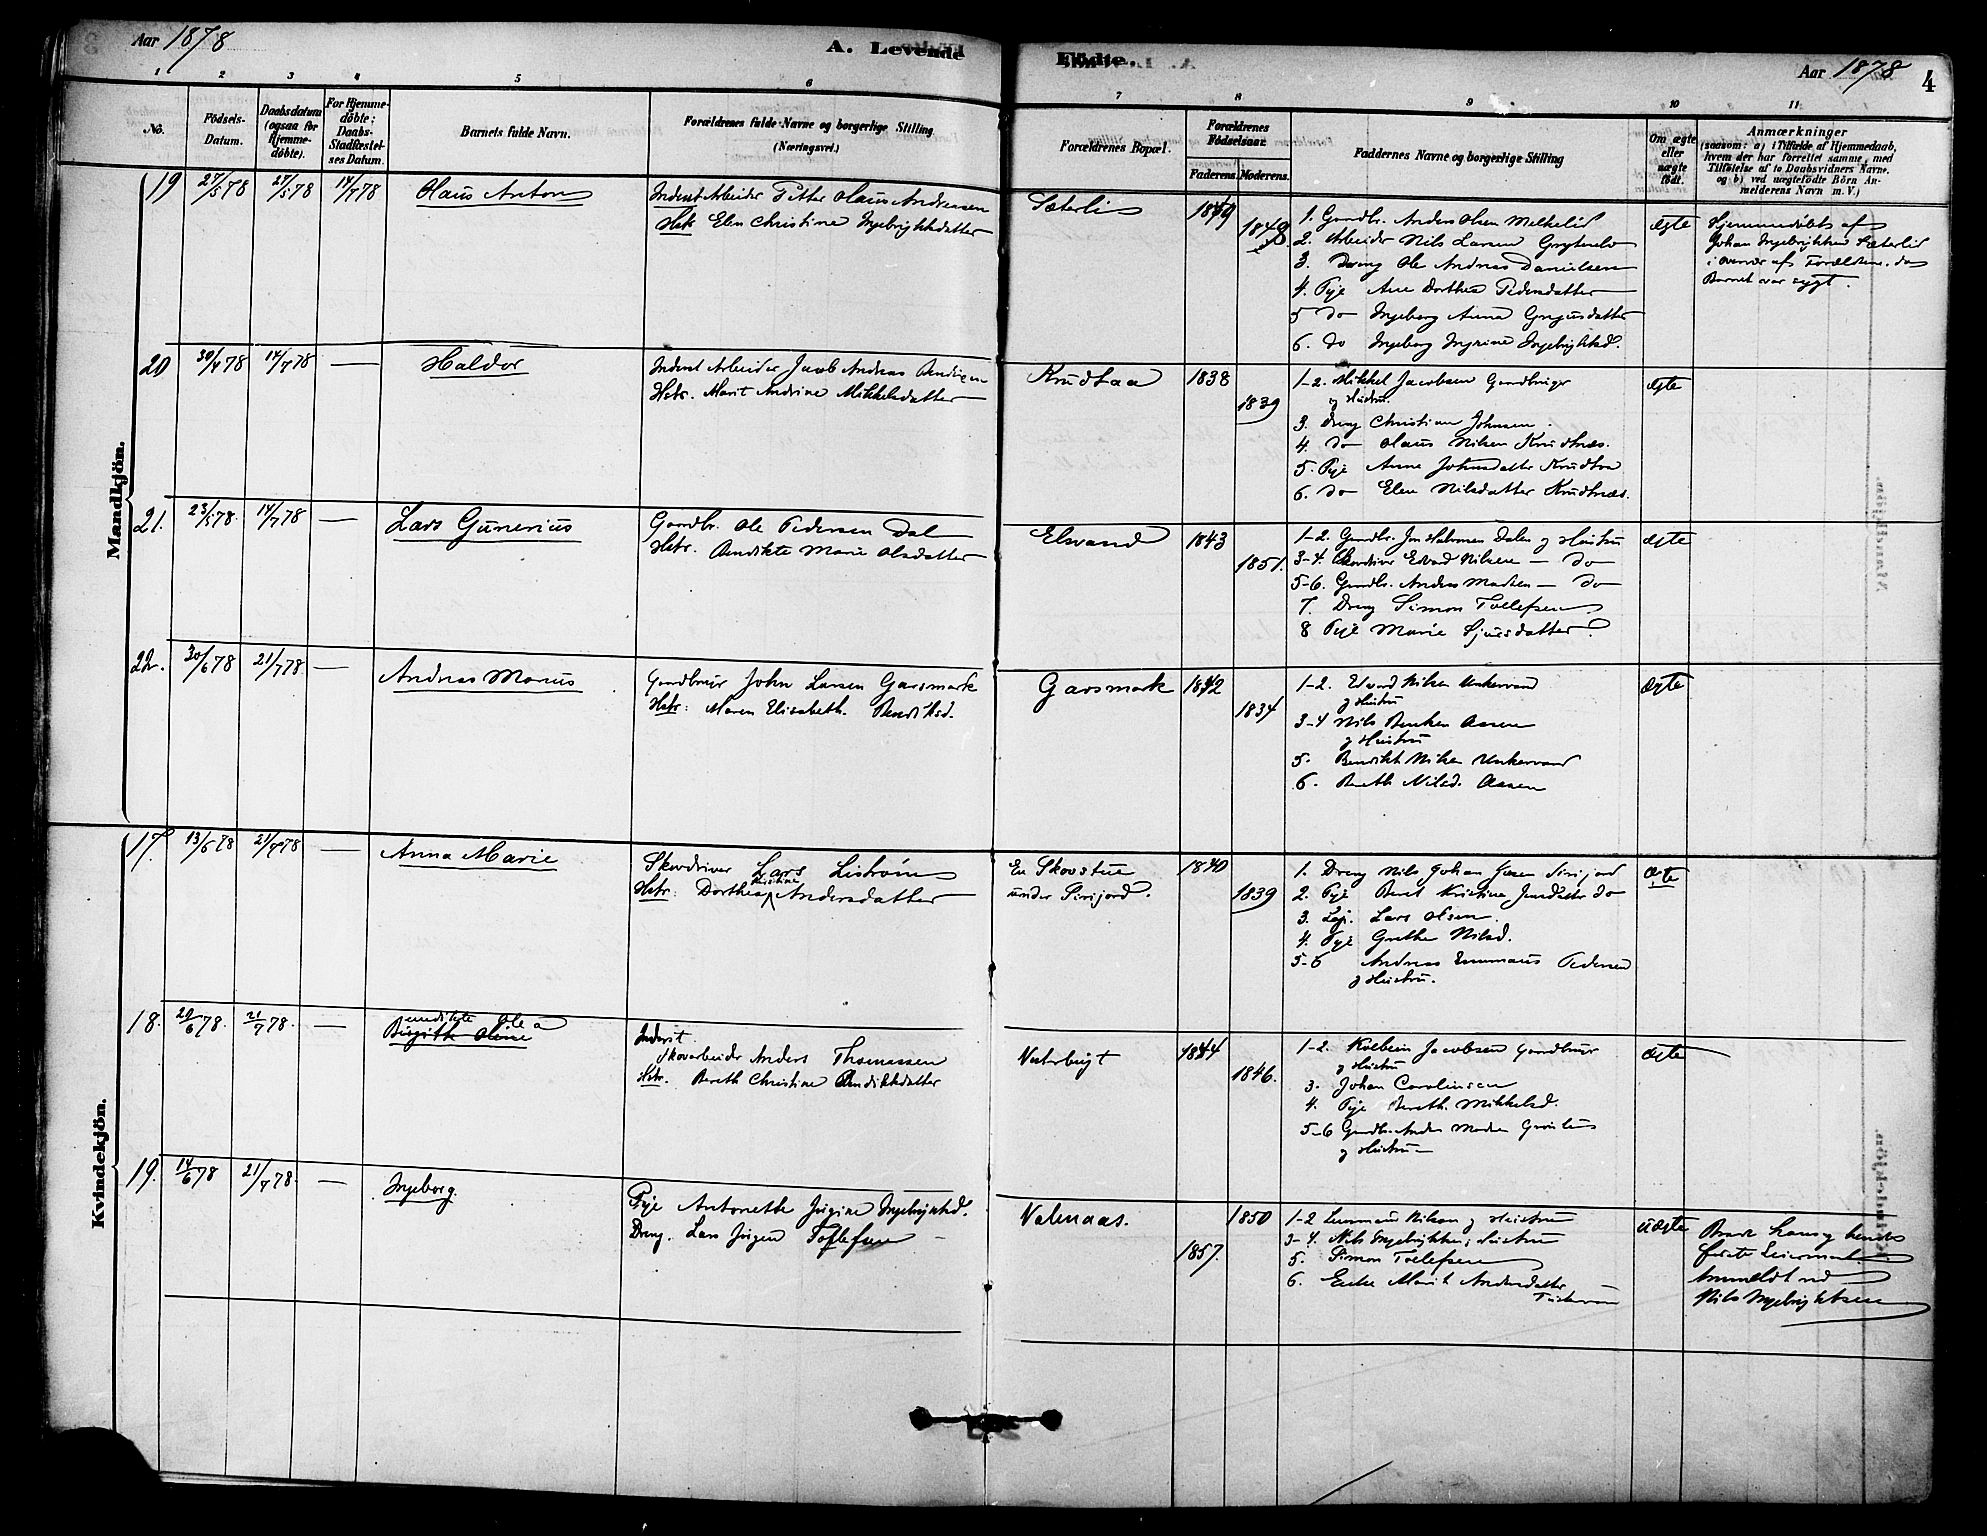 Aar 1878
A. Levende Födte.
Aar 1878
4
1 2 3 4 5 6 7 8 9 10 11
No.
Födsels-Datum.
Daabsdatum (ogsaa for Hjemme-döbte).
For Hjemme-döbte; Daabs-Stadfæstel-ses Datum.
Barnets fulde Navn.
Forældrenes fulde Navne og borgerlige Stilling (Næringsvei.)
Forældrenes Bopæl.
Forældrenes Födselsaar.
Faderens. Moderens.
Faddernes Navne og borgerlige Stilling
Om ægte eller uægte födt.
Anmærkninger
(saasom: a) i Tilfælde af Hjemmedaab, hvem der har forrettet samme, med Tilföielse af to Daabsvidners Navne, og b) ved uægtefödte Börn An-melderens Navn m. V.)
Mandkjön.
19 27/5 78 27/5 78 14/7 78 Olaus Anton
Inderst Arbeider Petter Olaus Andreasen
Hstr Elen Christine Ingebrigtsdatter
Sæterli
1849
1848
1. Gaardbr. Anders Olsen Melkelid
2. Arbeider Nils Larsen
3. Dreng Ole Andreas Danielsen
4. Pige Ane Dorthea Pedersdatter
5 do Ingeborg Anna
6. do Ingeborg Ingrine Ingebrigtsd.
ægte
Hjemmedøbt af
Johan Ingebrigtsen Sæterlid
i overvær af Forældrene, da
Barnet var sygt.
20 30/4 78 14/7 78 — Haldor
Inderst Arbeider Jacob Andreas
Hstr. Marit Andrine Mikkelsdatter
Knudtaa
1838
1839
1-2. Mikkel Jacobsen Gaardbruger
og Hustru.
3. Dreng Christian Johnsen.
4. do Olaus Nilsen Knudtnæs.
5. Pige Anne Johnsdatter Knudtaa
6. do Elen Nilsdatter Knudtnæs.
ægte
21. 23/5 78. 14/7 78 — Lars Gunerius
Gaardbr. Ole Pedersen Dal
Hstr. Bendikte Marie Olsdatter
Elsvand
1843
1851.
1-2. Gaardbr. Jon Dalen og Hustru
3-4. Skovdriver Edvard Nilsen — do
5-6. Gaardbr. Anders Madsen — do
7. Dreng Simon Tollefsen
8 Pige Marie Sjursdatter.
ægte
22. 30/6 78 21/7 78 — Andreas Marius
Gaardbruger John Larsen Garsmark
Hstr: Maren Elisabeth. Bendiktsd.
Garsmark
1842
1834
1-2. Edvard Nilsen Unkervand
og Hustru
3-4 Nils Aasen
og Hustru
5. Bendikt Nilsen Unkervand
6. Bereth Nilsd. Aasen
ægte
Kvindekjön.
17. 13/6 78 21/7 78 — Anna Marie
Skovdriver Lars Liström
Hstr: Dorthea Kristine Andersdatter
En Skovstue
under Sirijord.
1840
1839
1. Dreng Nils Johan Sirijord
2. Pige Beret Kristine do
3. Lars Olsen.
4. Pige Grethe Nilsd.
5-6 Andreas Emmaus Pedersen
og Hustru.
ægte
18. 20/6 78. 21/7 78. — Birgith Oline
endikte Olea
Inderst.
Skovarbeider Anders Thomassen
Hstr. Bereth Christine Bendiktsdatter
Vesterbugt
1844
1846.
1-2. Kolbein Jacobsen Gaardbruger
og Hustru
3. Johan Carolinsen
4. Pige Bereth. Mikkelsd.
5-6 Gaardbr. Anders Madsen
og Hustru
ægte
19. 14/6 78 21/7 78. — Ingeborg.
Pige Antonette Jørgine Ingebrigtsd.
Dreng. Lars Jørgen Tollefsen
Valenaas.
1850
1857.
1-2 Emmaus Nilsen og Hustru
3-4. Nils Ingebrigtsen og Hustru
5. Simon Tollefsen
6. Enke Marit Andersdatter
uægte
Baade hans og hendes
første Leiermaal.
Anmeldt ved
Nils Ingebrigtsen